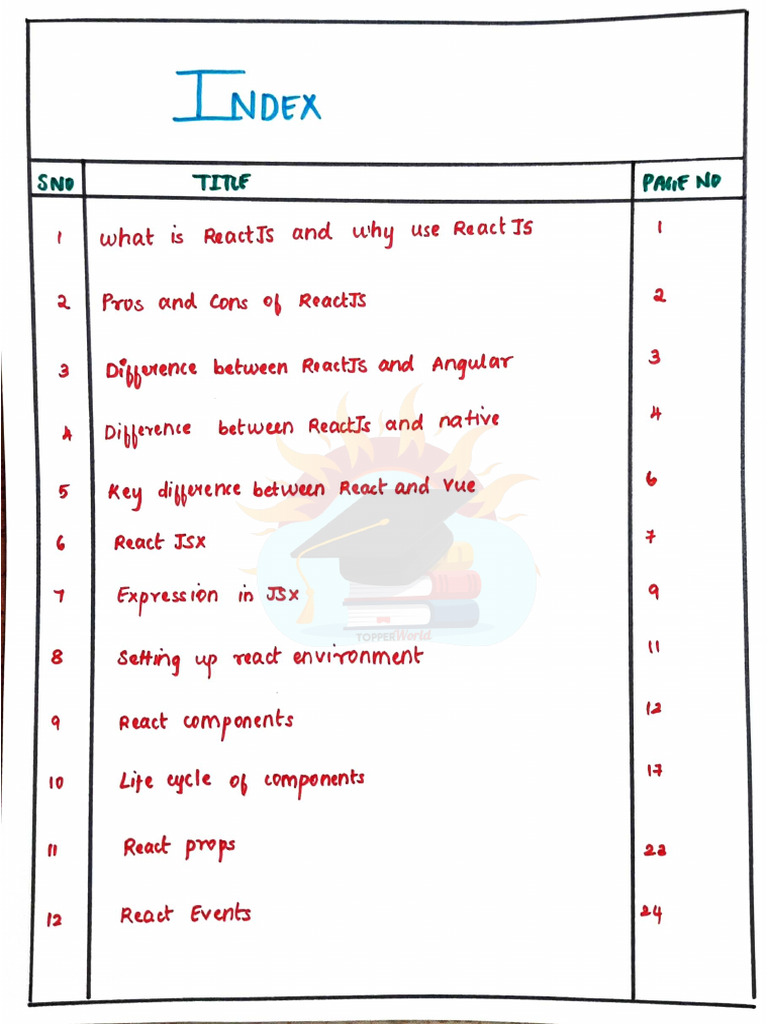 INDEX
SNO TITLE PAGE NO
1 What is ReactJs and why use ReactJS 1
2 Pros and Cons of ReactJs 2
3 Difference between ReactJs and Angular 3
4 Difference between ReactJs and native 4
5 Key difference between React and Vue 6
6 React JSX 7
7 Expression in JSX 9
TOPPERWorld
8 Setting up react environment 11
9 React components 12
10 Life cycle of components 17
11 React props 22
12 React Events 24